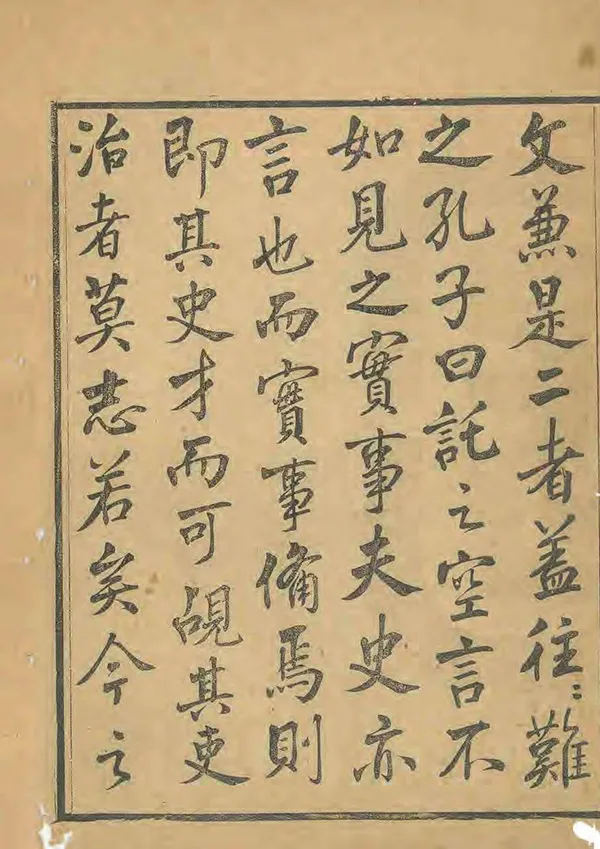 文兼是二者蓋往〻難
之孔子曰託之空言不
如見之實事夫史亦
言也而實事備焉則
即其史才而可覘其吏
治者莫志若矣今之